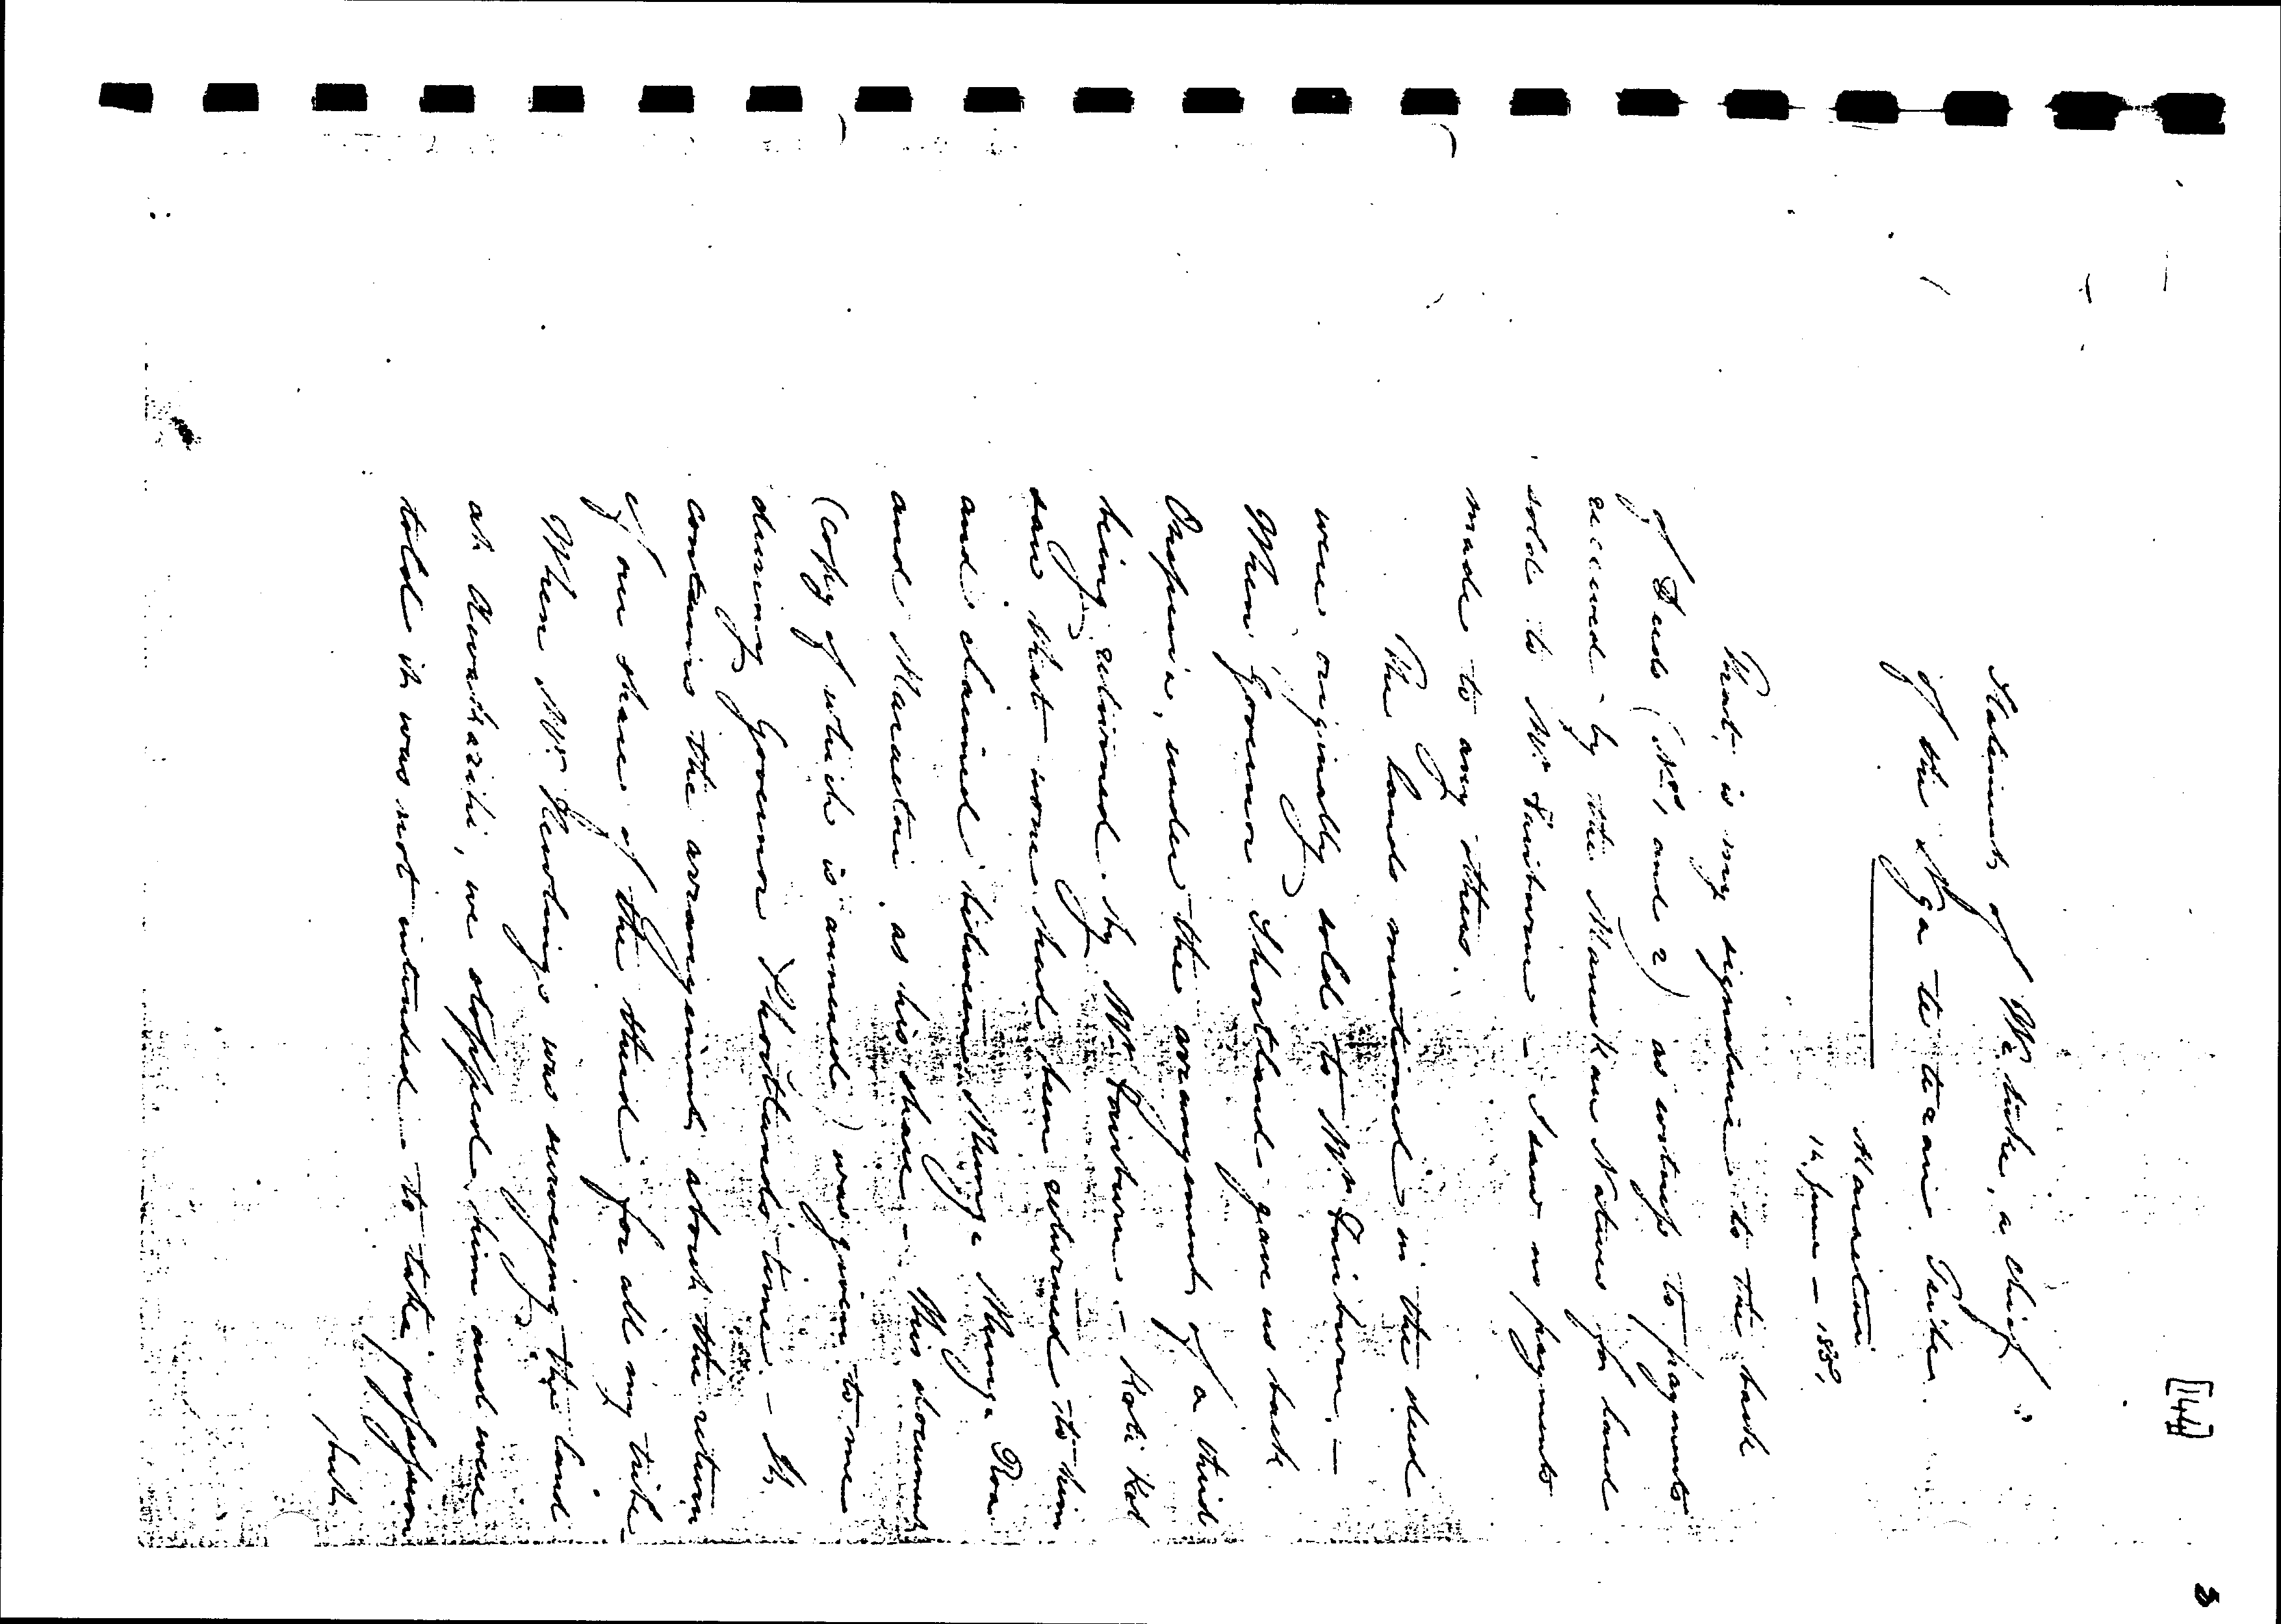 [144]
Statement of Wi tike, a chief
of the Nga te te ari Tribe.
Maraetai
14 June – 1851
That is my signature to the back
of Deeds (Nos 1 and 2) as witness to payments
received by the Manukau Natives for land
sold to Mr Fairburn – I saw no payments
made to any others.
The lands mentioned in the deed
were originally sold to Mr Fairburn. –
When Governor Shortland gave us back
under the arrangement of a third
being returned by Mr Fairburn. –
saw that some had been returned to him
and claimed between Munga Munga Roa
and Maraetai, as his share – This document
(copy of which is annexed) was given to me
during Governor Shortlands time – It
contains the arrangement about the return
of our share of the third for all my tribe
When Mr was surveying the land
at we stopped him and were
told it was not intended to take possession
but